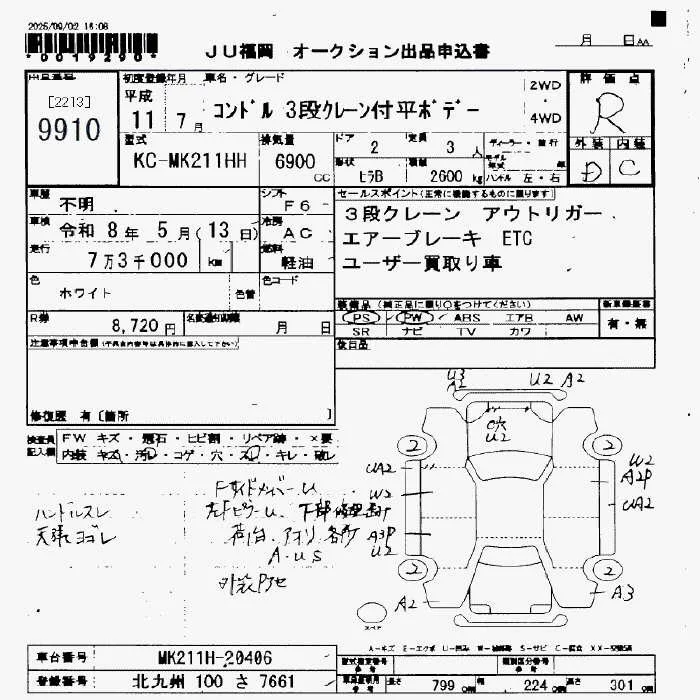 2025/09/02 16:08
*0019290*
JU福岡 オークション出品申込書
月 日 AA
出品番号
[2213]
9910
初度登録年月
平成
11 7月
車名・グレード
コンドル 3段クレーン付平ボデー
2WD
4WD
評価点
R
外装 内装
D C
型式
KC-MK211HH
排気量
6900 CC
ドア
2
定員
3 人
形状
ヒラB
積載
2600 kg
ディーラー・並行
モデル年式 年
ハンドル 左・右
車歴
不明
シフト
F6
車検
令和 8年 5月(13日)
冷房
AC
走行
7万3千000 km
燃料
軽油
色
ホワイト
色替
色コード
セールスポイント(正常に機能するものに限ります)
3段クレーン アウトリガー
エアーブレーキ ETC
ユーザー買取り車
R券
8,720円
名義変更期限
月 日
装備品(純正品に限り○をつけてください)
PS PW ABS エアB AW
SR ナビ TV カワ
新車保証書
有・無
後日品
注意事項申告欄
修復歴 有〔箇所 〕
検査員
記入欄
FW キズ・飛石・ヒビ割・リペア跡・×要
内装 キズ・汚れ・コゲ・穴・スレ・キレ・破れ
ハンドルスレ
天張ヨゴレ
FサイドメンバーU
A・U・S
外装Pアセ
U3
A2
U2 A2
穴
U2
2
2
2
2
UA2
W2
A3P
U2
A2
W2
A2P
UA2
A3
スペア
A-キズ E-エクボ U-凹み W-補修跡 S-サビ C-腐食 XX-交換済
車台番号
MK211H-20406
登録番号
北九州 100 さ 7661
型式指定番号
類別区分番号
長さ 799 cm
幅 224 cm
高さ 301 cm